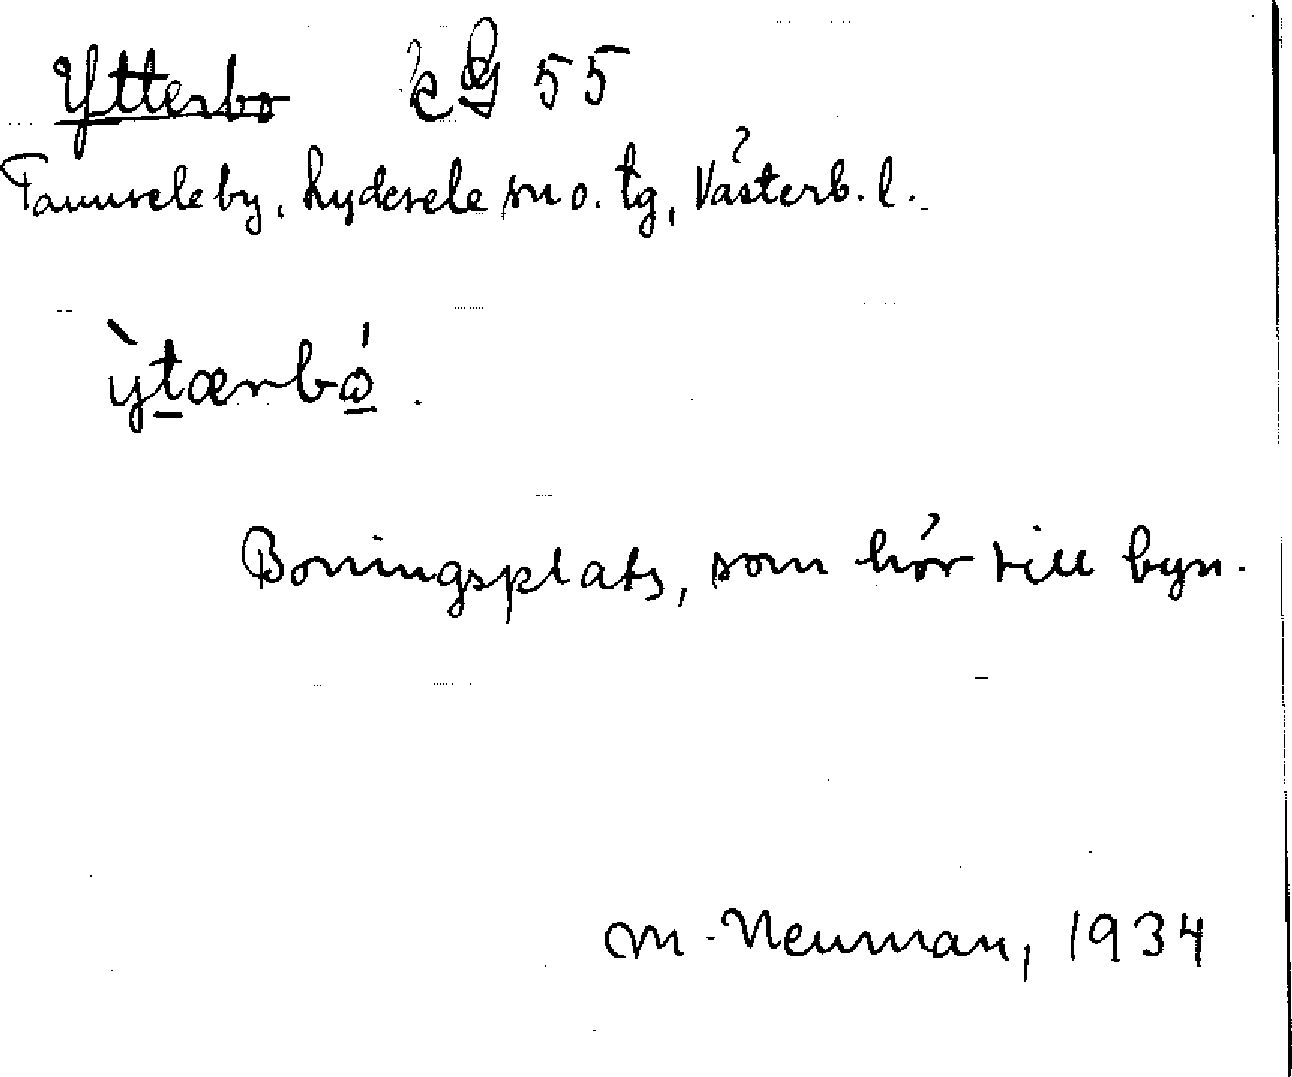 Ytterbo G 55
Tannsele by, Lycksele sn o. tg, Västerb. l.
ỳtærbó.
Boningsplats, som hör till byn.
M. Neuman, 1934